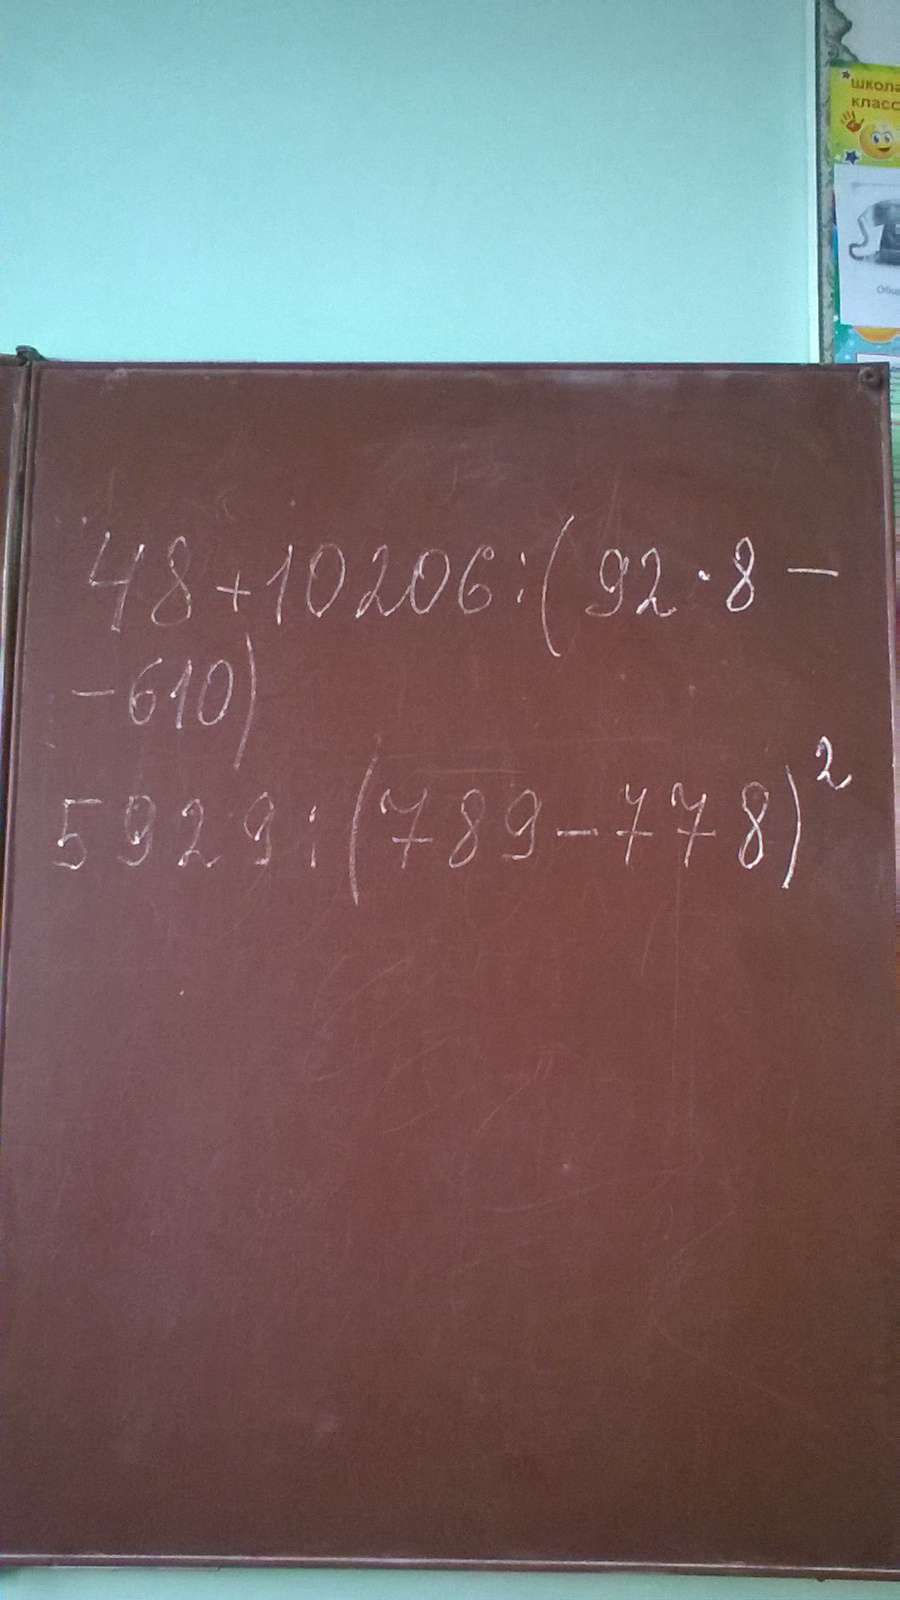 школа
класс
48+10206:(92·8−
−610)
5929:(789−778)²